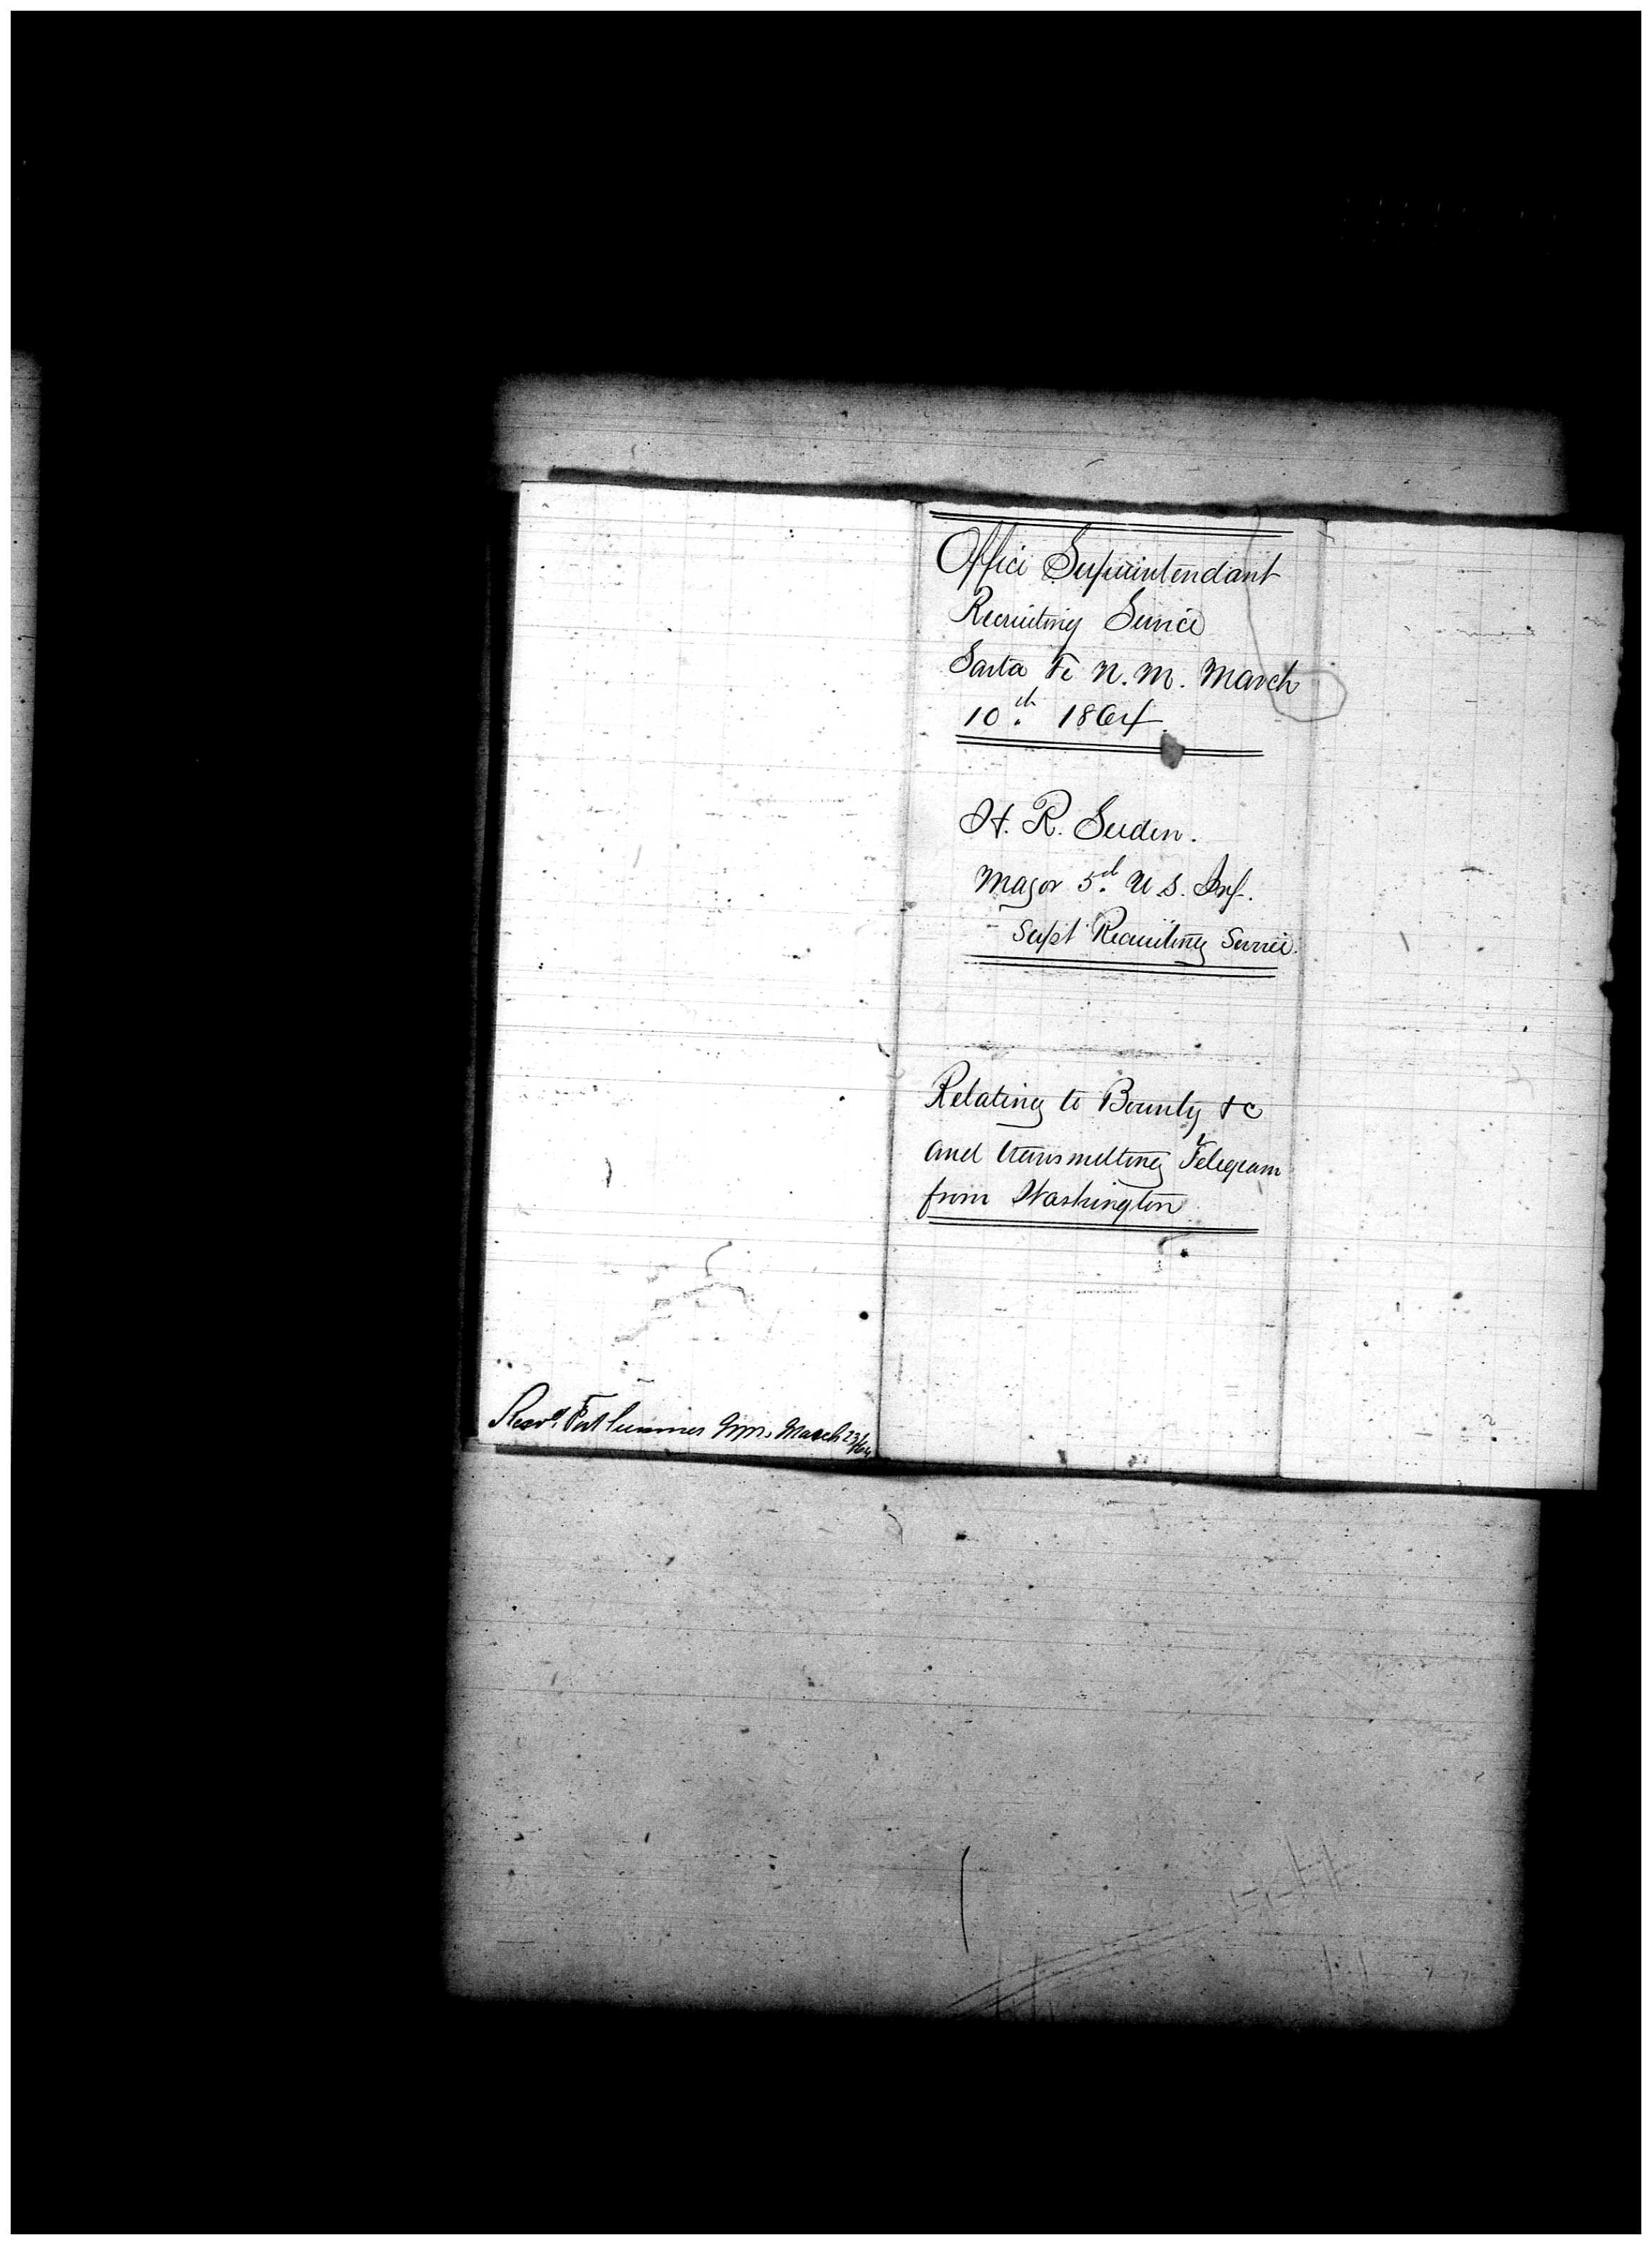 Office Superintendant
Recruiting Service
Santa Fe N. M. March
10th. 1864
H. R. Selden.
Major 5d. U. S. Inf.
Supt Recruiting Service.
Relating to Bounty &c
and transmitting Telegram
from Washington
Recvd. Fort Sumner N.M. March 23/64